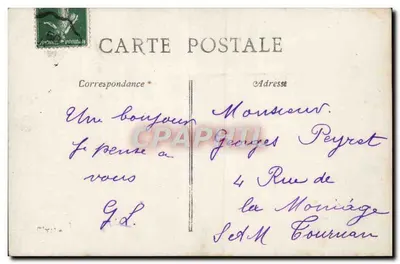 CARTE POSTALE
Correspondance
Adresse
Un bonjour
Je pense à
vous
G.L.
Monsieur
Georges Peyrot
4 Rue de
la Moniage
SAM Tournan
CPAPHIL